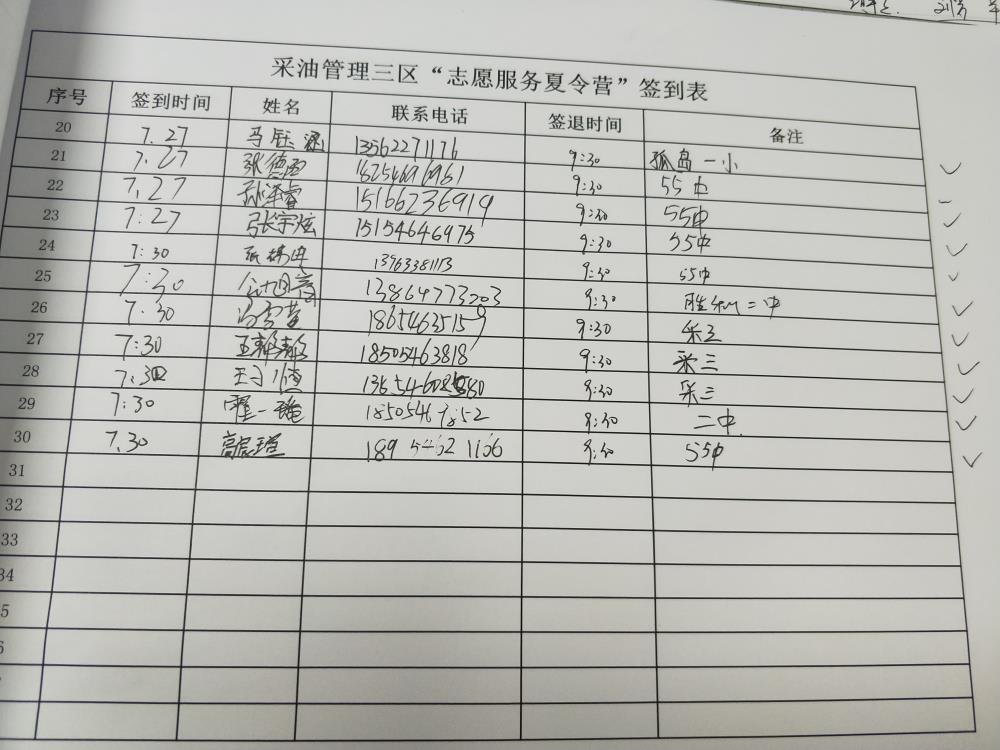 采油管理三区“志愿服务夏令营”签到表
序号 签到时间 姓名 联系电话 签退时间 备注
20 7.27 马钰涵 13562271176 9:30 孤岛一小
21 7.27 张德 9:30 55中
22 7.27 孙泽睿 15166236919 9:30 55中
23 7:27 张宇炫 15154646975 9:30 55中
24 7:30 13963381113 9:30 55中
25 7:30 13864773203 9:30 胜利二中
26 7.30 18654635159 9:30 采三
27 7:30 18505463818 9:30 采三
28 7.30 9:30 采三
29 7:30 一 1850546 9852 9:30 二中
30 7.30 189 5462 1166 9:30 55中
31
32
33
34
5
6